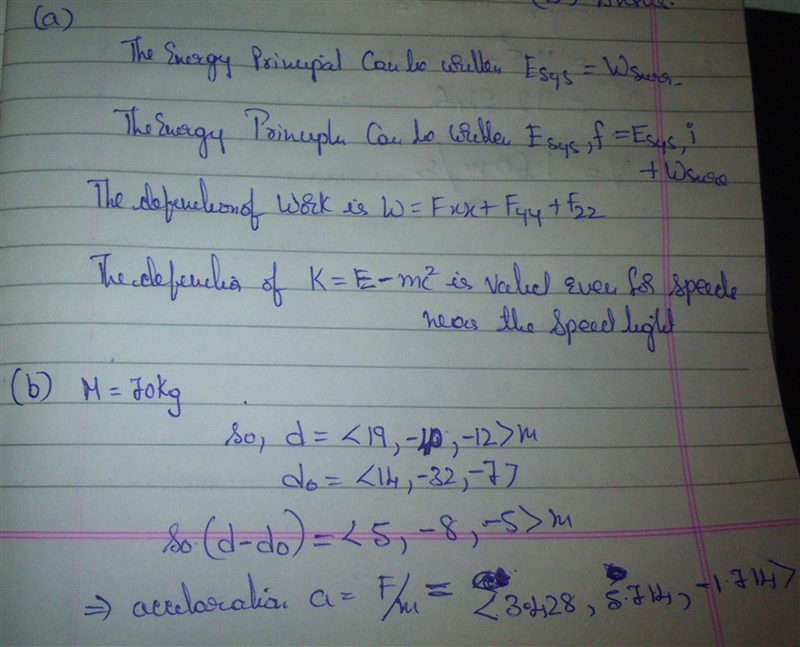 (a)
The Energy Principal Can be written Esys = Wsurr.
The Energy Principle Can be written Esys,f = Esys,i
+ Wsurr
The defenction of Work is W = Fxx + Fyy + Fzz
The defenctio of K = E - mc² is valied even for speeds
near the speed light
(b) M = 70kg
so, d = <19, -40, -12> m
d₀ = <14, -32, -7>
so (d-d₀) = <5, -8, -5> m
⇒ accelaration a = F/m = <3.428, 5.714, -1.714>